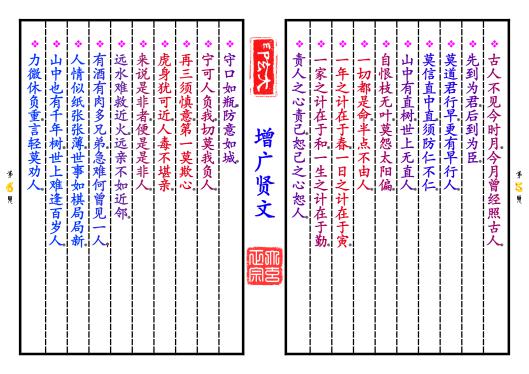 第5頁
古人不见今时月今月曾经照古人。
先到为君后到为臣。
莫道君行早更有早行人。
莫信直中直须防仁不仁。
山中有直树世上无直人。
自恨枝无叶莫怨太阳偏。
一切都是命半点不由人。
一年之计在于春一日之计在于寅。
一家之计在于和一生之计在于勤。
责人之心责己恕己之心恕人。
增广贤文
守口如瓶防意如城。
宁可人负我切莫我负人。
再三须慎意第一莫欺心。
虎身犹可近人毒不堪亲。
来说是非者便是是非人。
远水难救近火远亲不如近邻。
有酒有肉多兄弟急难何曾见一人。
人情似纸张张薄世事如棋局局新。
山中也有千年树世上难逢百岁人。
力微休负重言轻莫劝人。
第6頁